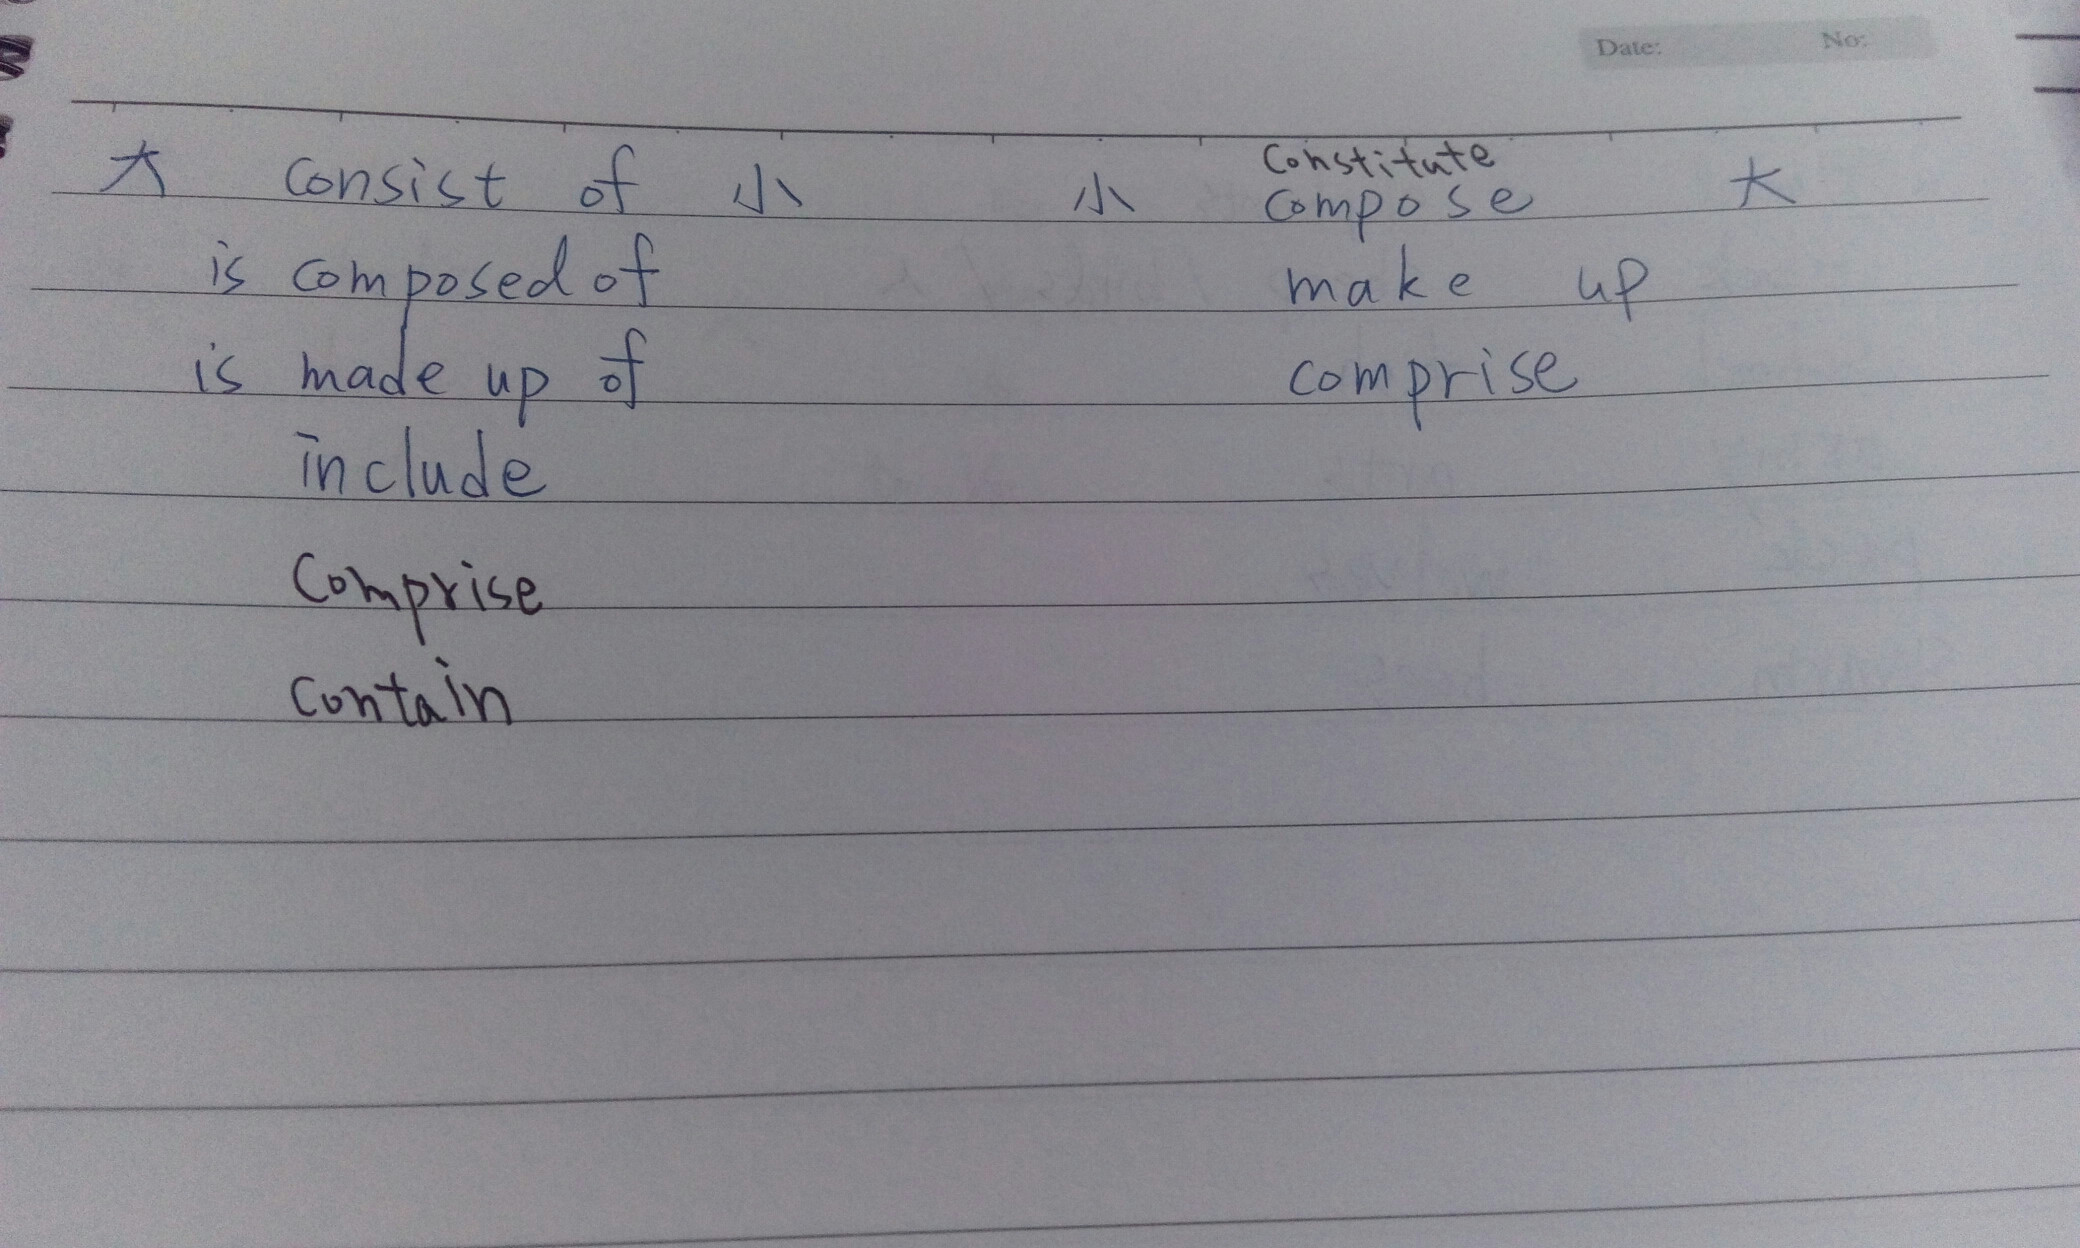 Date: No:
大 consist of 小 小 constitute
compose 大
is composed of make up
is made up of comprise
include
comprise
contain